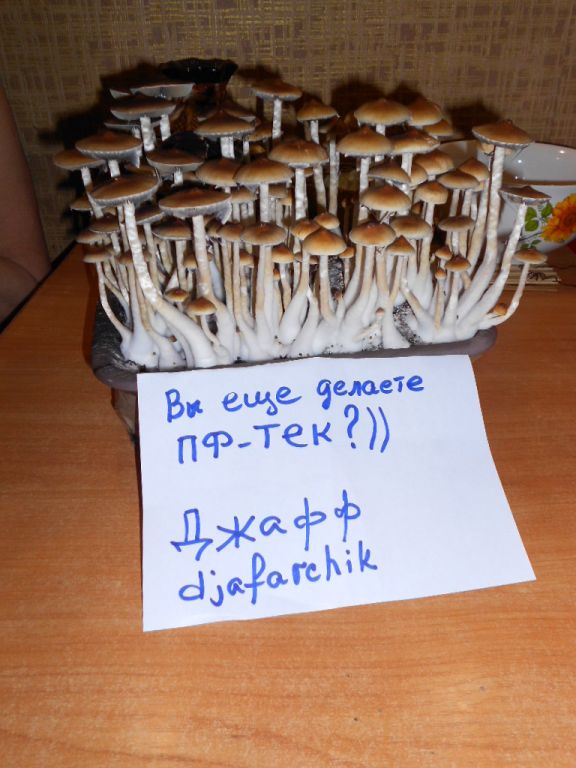 Вы еще делаете
ПФ-тек?))
Джафф
djafarchik